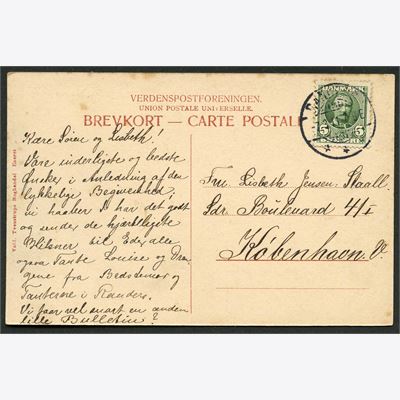 VERDENSPOSTFORENINGEN.
UNION POSTALE UNIVERSELLE.
BREVKORT — CARTE POSTALE
DANMARK
5 5
Kære Søren og Lisbeth!
Vore inderligste og bedste
Ønsker i Anledning af den
lykkelige Begivenhed.
vi haaber I har det godt
og sender de hjærteligste
Hilsner til Eder alle
ogsaa Tante Louise og
fra Bedstemor og
Tanterne i Randers.
Vi faar vel snart en anden
lille Bulletin?
Fru Lisbeth Jensen Staall.
Sdr. Boulevard 4/I
København V.